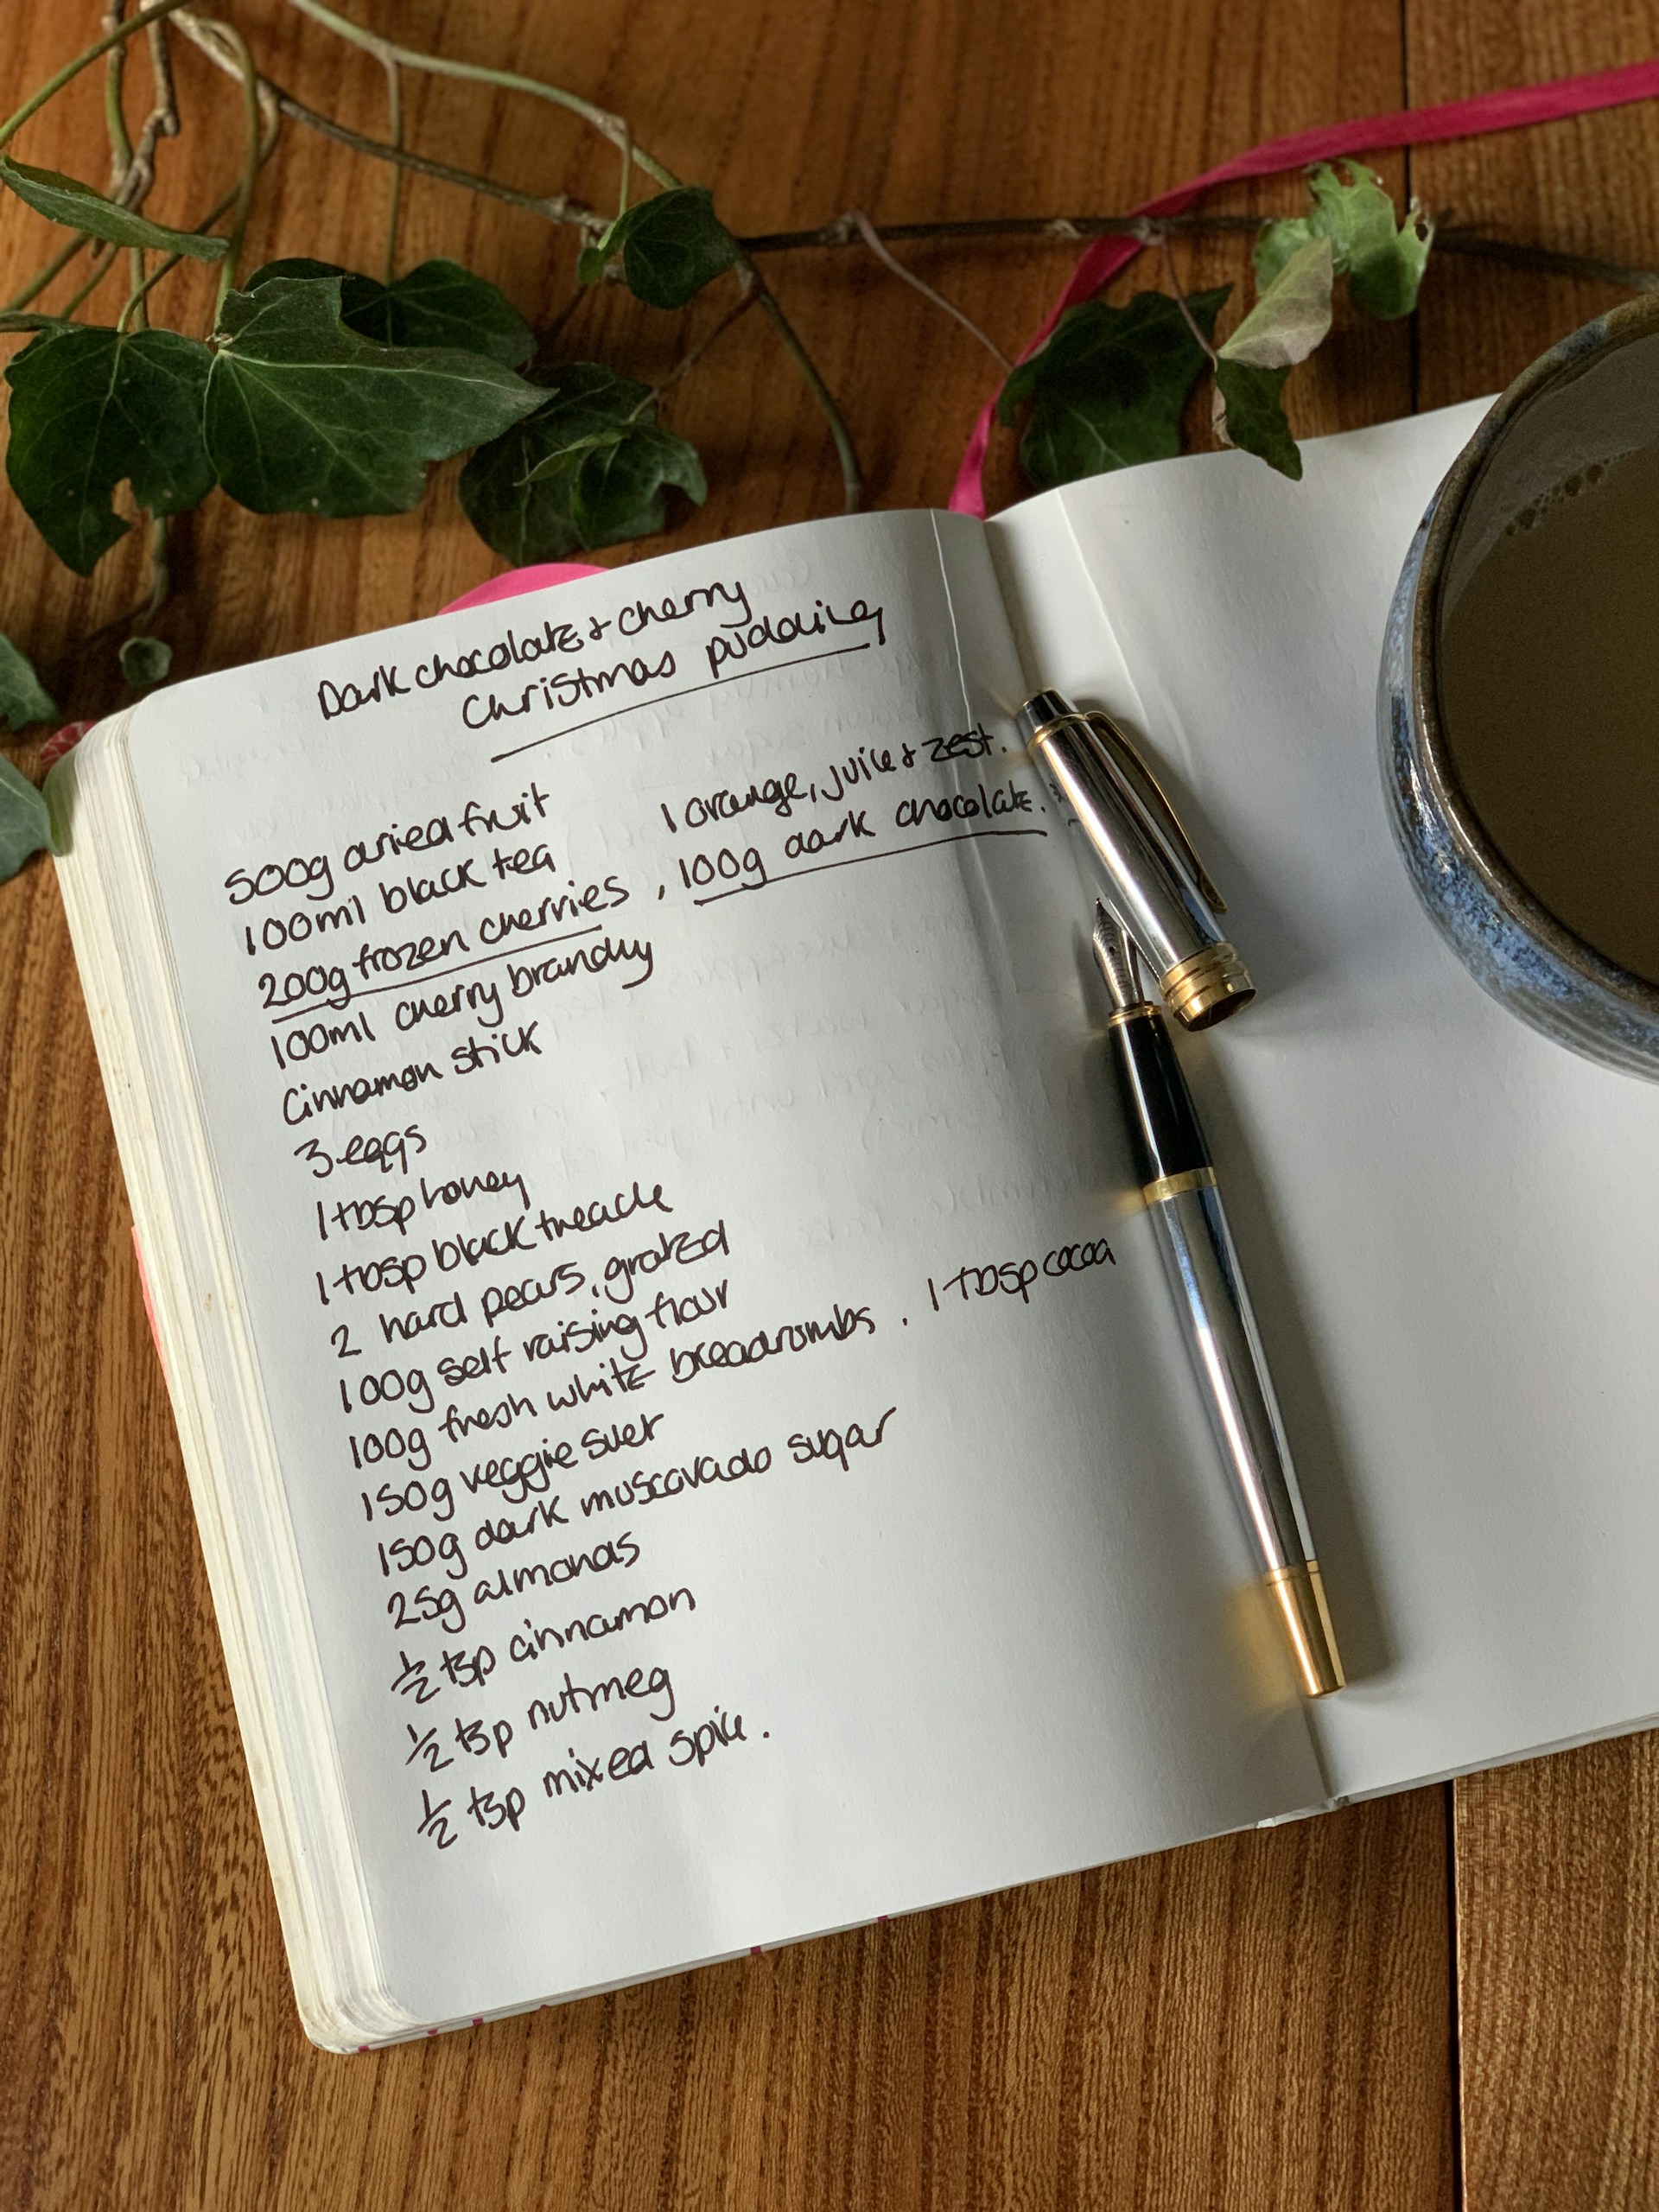 Dark chocolate & cherry
Christmas pudding
500g dried fruit
1 orange, juice & zest.
100ml black tea
200g frozen cherries , 100g dark chocolate.
100ml cherry brandy
Cinnamon stick
3 eggs
1 tbsp honey
1 tbsp black treacle
2 hard pears, grated
100g self raising flour
100g fresh white breadcrumbs . 1 tbsp cocoa
150g veggie suet
150g dark muscovado sugar
25g almonds
½ tsp cinnamon
½ tsp nutmeg
½ tsp mixed spice.